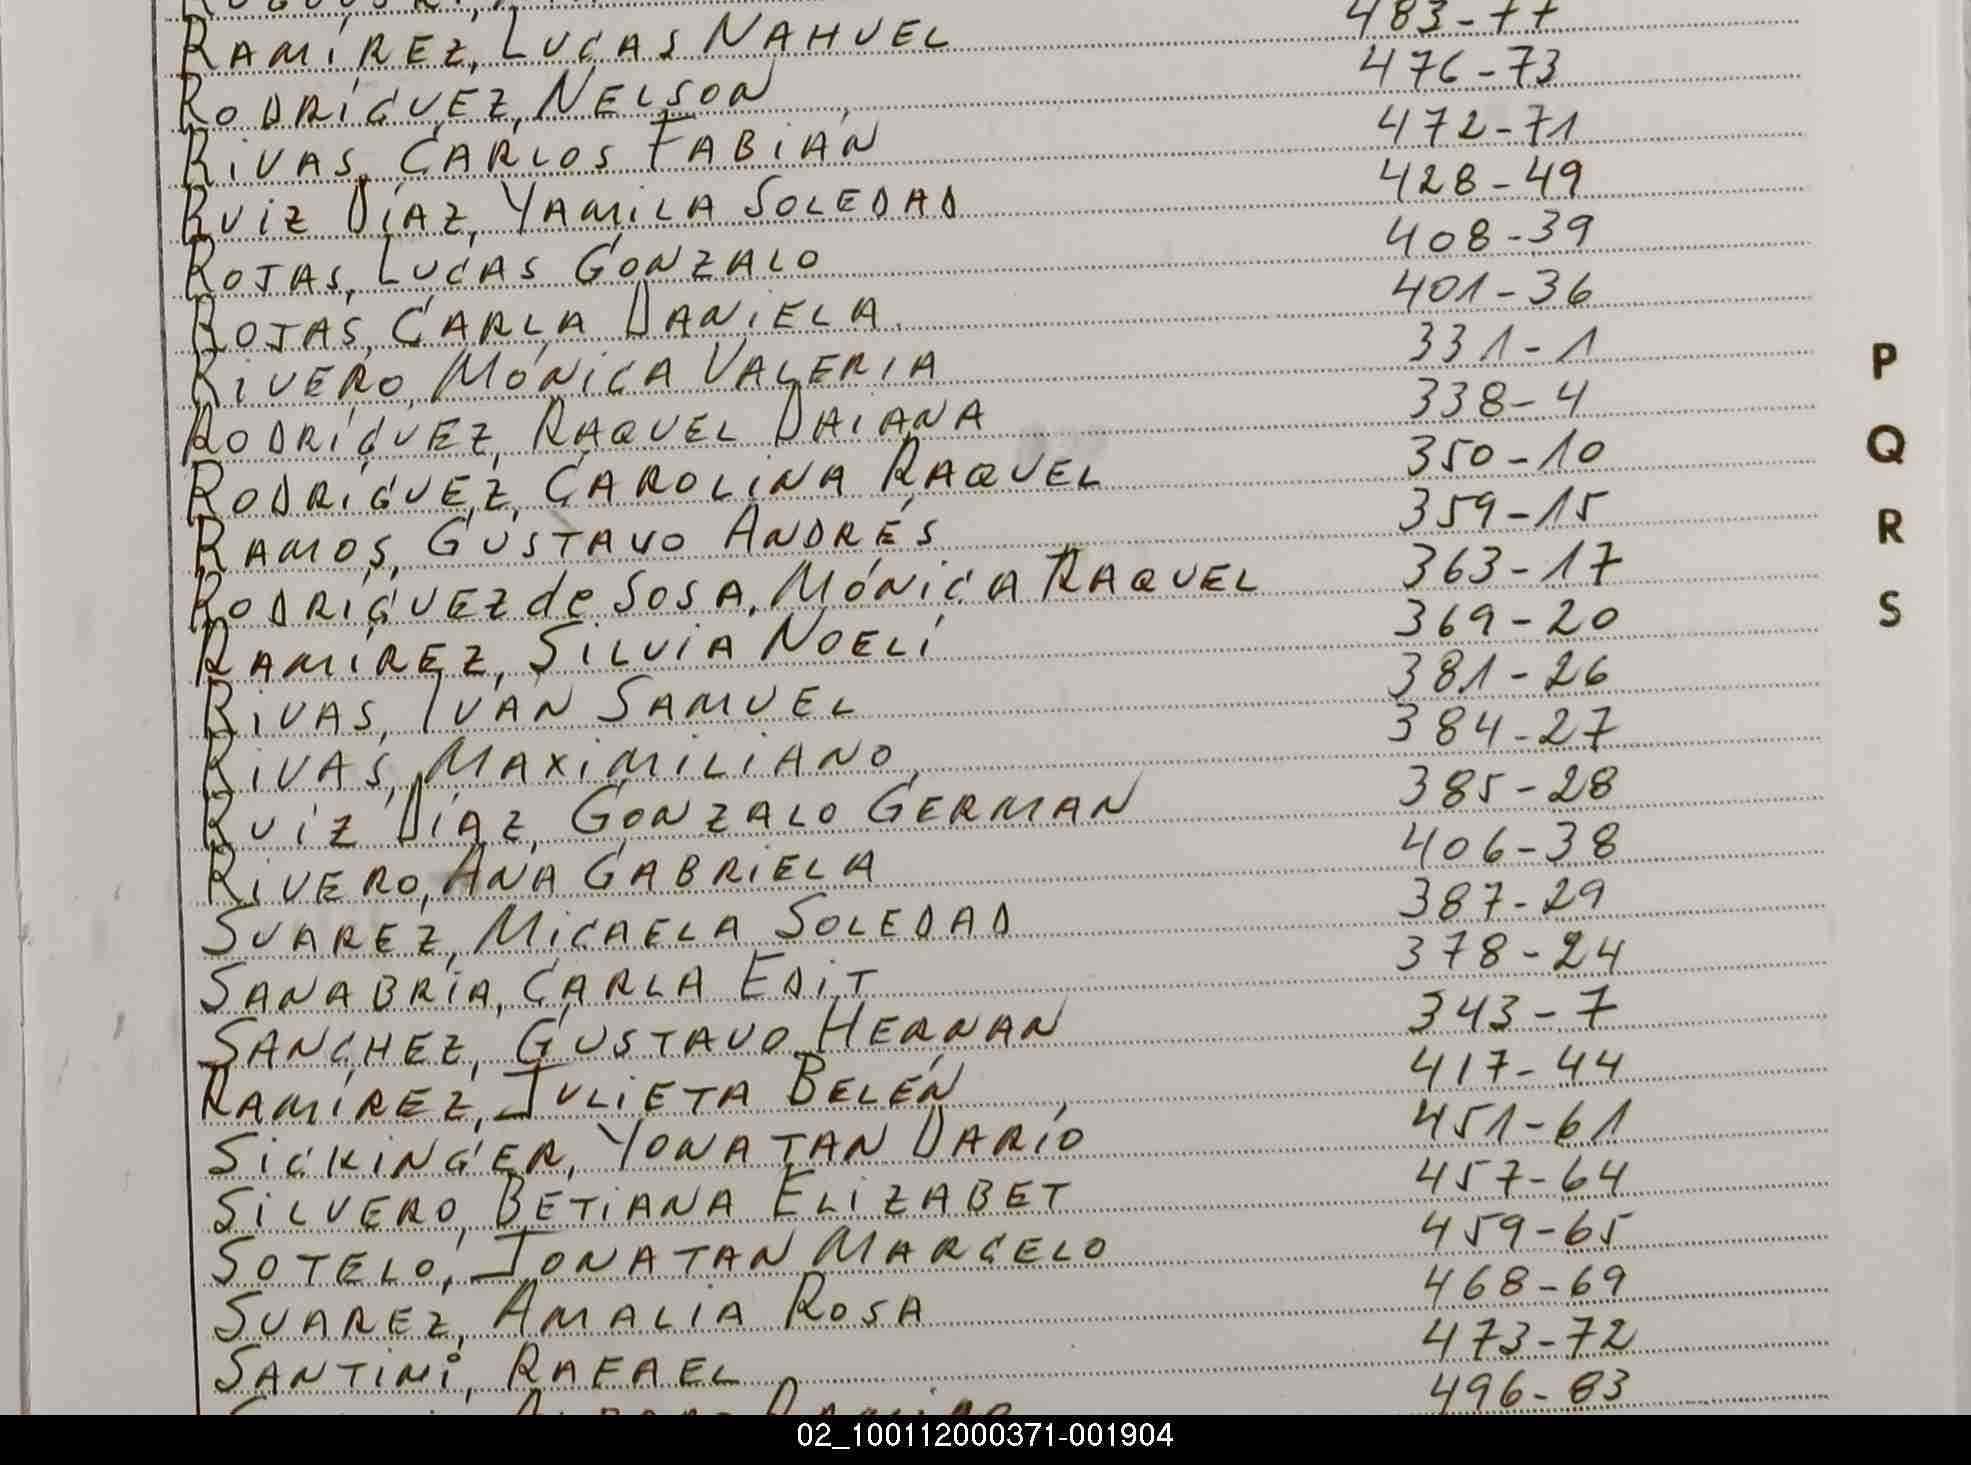 RAMÍREZ, LUCAS NAHUEL 483-77
RODRÍGUEZ, NELSON 476-73
RIVAS, CARLOS FABIÁN 472-71
RUIZ DÍAZ, YAMILA SOLEDAD 428-49
ROJAS, LUCAS GONZALO 408-39
ROJAS, CARLA DANIELA 401-36
RIVERO, MÓNICA VALERIA 331-1
RODRÍGUEZ, RAQUEL DAIANA 338-4
RODRÍGUEZ, CAROLINA RAQUEL 350-10
RAMOS, GUSTAVO ANDRÉS 359-15
RODRÍGUEZ de SOSA, MÓNICA RAQUEL 363-17
RAMÍREZ, SILVIA NOELÍ 369-20
RIVAS, IVÁN SAMUEL 381-26
RIVAS, MAXIMILIANO 384-27
RUIZ DÍAZ, GONZALO GERMAN 385-28
RIVERO, ANA GABRIELA 406-38
SUAREZ, MICAELA SOLEDAD 387-29
SANABRIA, CARLA EDIT 378-24
SANCHEZ, GUSTAVO HERNAN 343-7
RAMÍREZ, JULIETA BELÉN 417-44
SICKINGER, YONATAN DARÍO 451-61
SILVERO, BETIANA ELIZABET 457-64
SOTELO, JONATAN MARCELO 459-65
SUAREZ, AMALIA ROSA 468-69
SANTINI, RAFAEL 473-72
496-83
P
Q
R
S
02_100112000371-001904